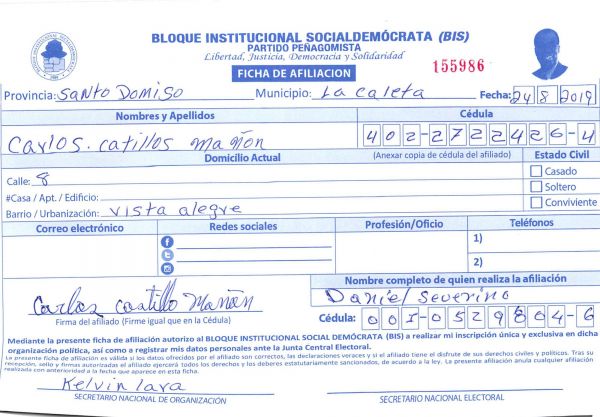 BLOQUE INSTITUCIONAL SOCIALDEMÓCRATA (BIS)
PARTIDO PEÑAGOMISTA
Libertad, Justicia, Democracia y Solidaridad
FICHA DE AFILIACION
155986
Provincia: Santo Domigo Municipio: La Caleta Fecha: 24 8 2019
Nombres y Apellidos Cédula
Carlos. catillos mañón 402-2722426-4
Domicilio Actual (Anexar copia de cédula del afiliado) Estado Civil
Calle: 8 Casado
#Casa / Apt. / Edificio: Soltero
Barrio / Urbanización: vista alegre Conviviente
Correo electrónico Redes sociales Profesión/Oficio Teléfonos
1)
2)
Nombre completo de quien realiza la afiliación
Carlos castillo Mañón Daniel Severino
Firma del afiliado (Firme igual que en la Cédula) Cédula: 001-0529804-6
Mediante la presente ficha de afiliación autorizo al BLOQUE INSTITUCIONAL SOCIAL DEMÓCRATA (BIS) a realizar mi inscripción única y exclusiva en dicha
organización política, así como a registrar mis datos personales ante la Junta Central Electoral.
La presente ficha de afiliación es válida si los datos ofrecidos por el afiliado son correctos, las declaraciones veraces y si el afiliado tiene el disfrute de sus derechos civiles y políticos. Tras su
recepción, sello y firmas autorizadas el afiliado ejercerá todos los derechos y los deberes estatutariamente sancionados, de acuerdo a la ley. La presente afiliación anula cualquier afiliación
realizada con anterioridad a la fecha que aparece en esta ficha.
Kelvin lara
SECRETARIO NACIONAL DE ORGANIZACIÓN SECRETARIO NACIONAL ELECTORAL